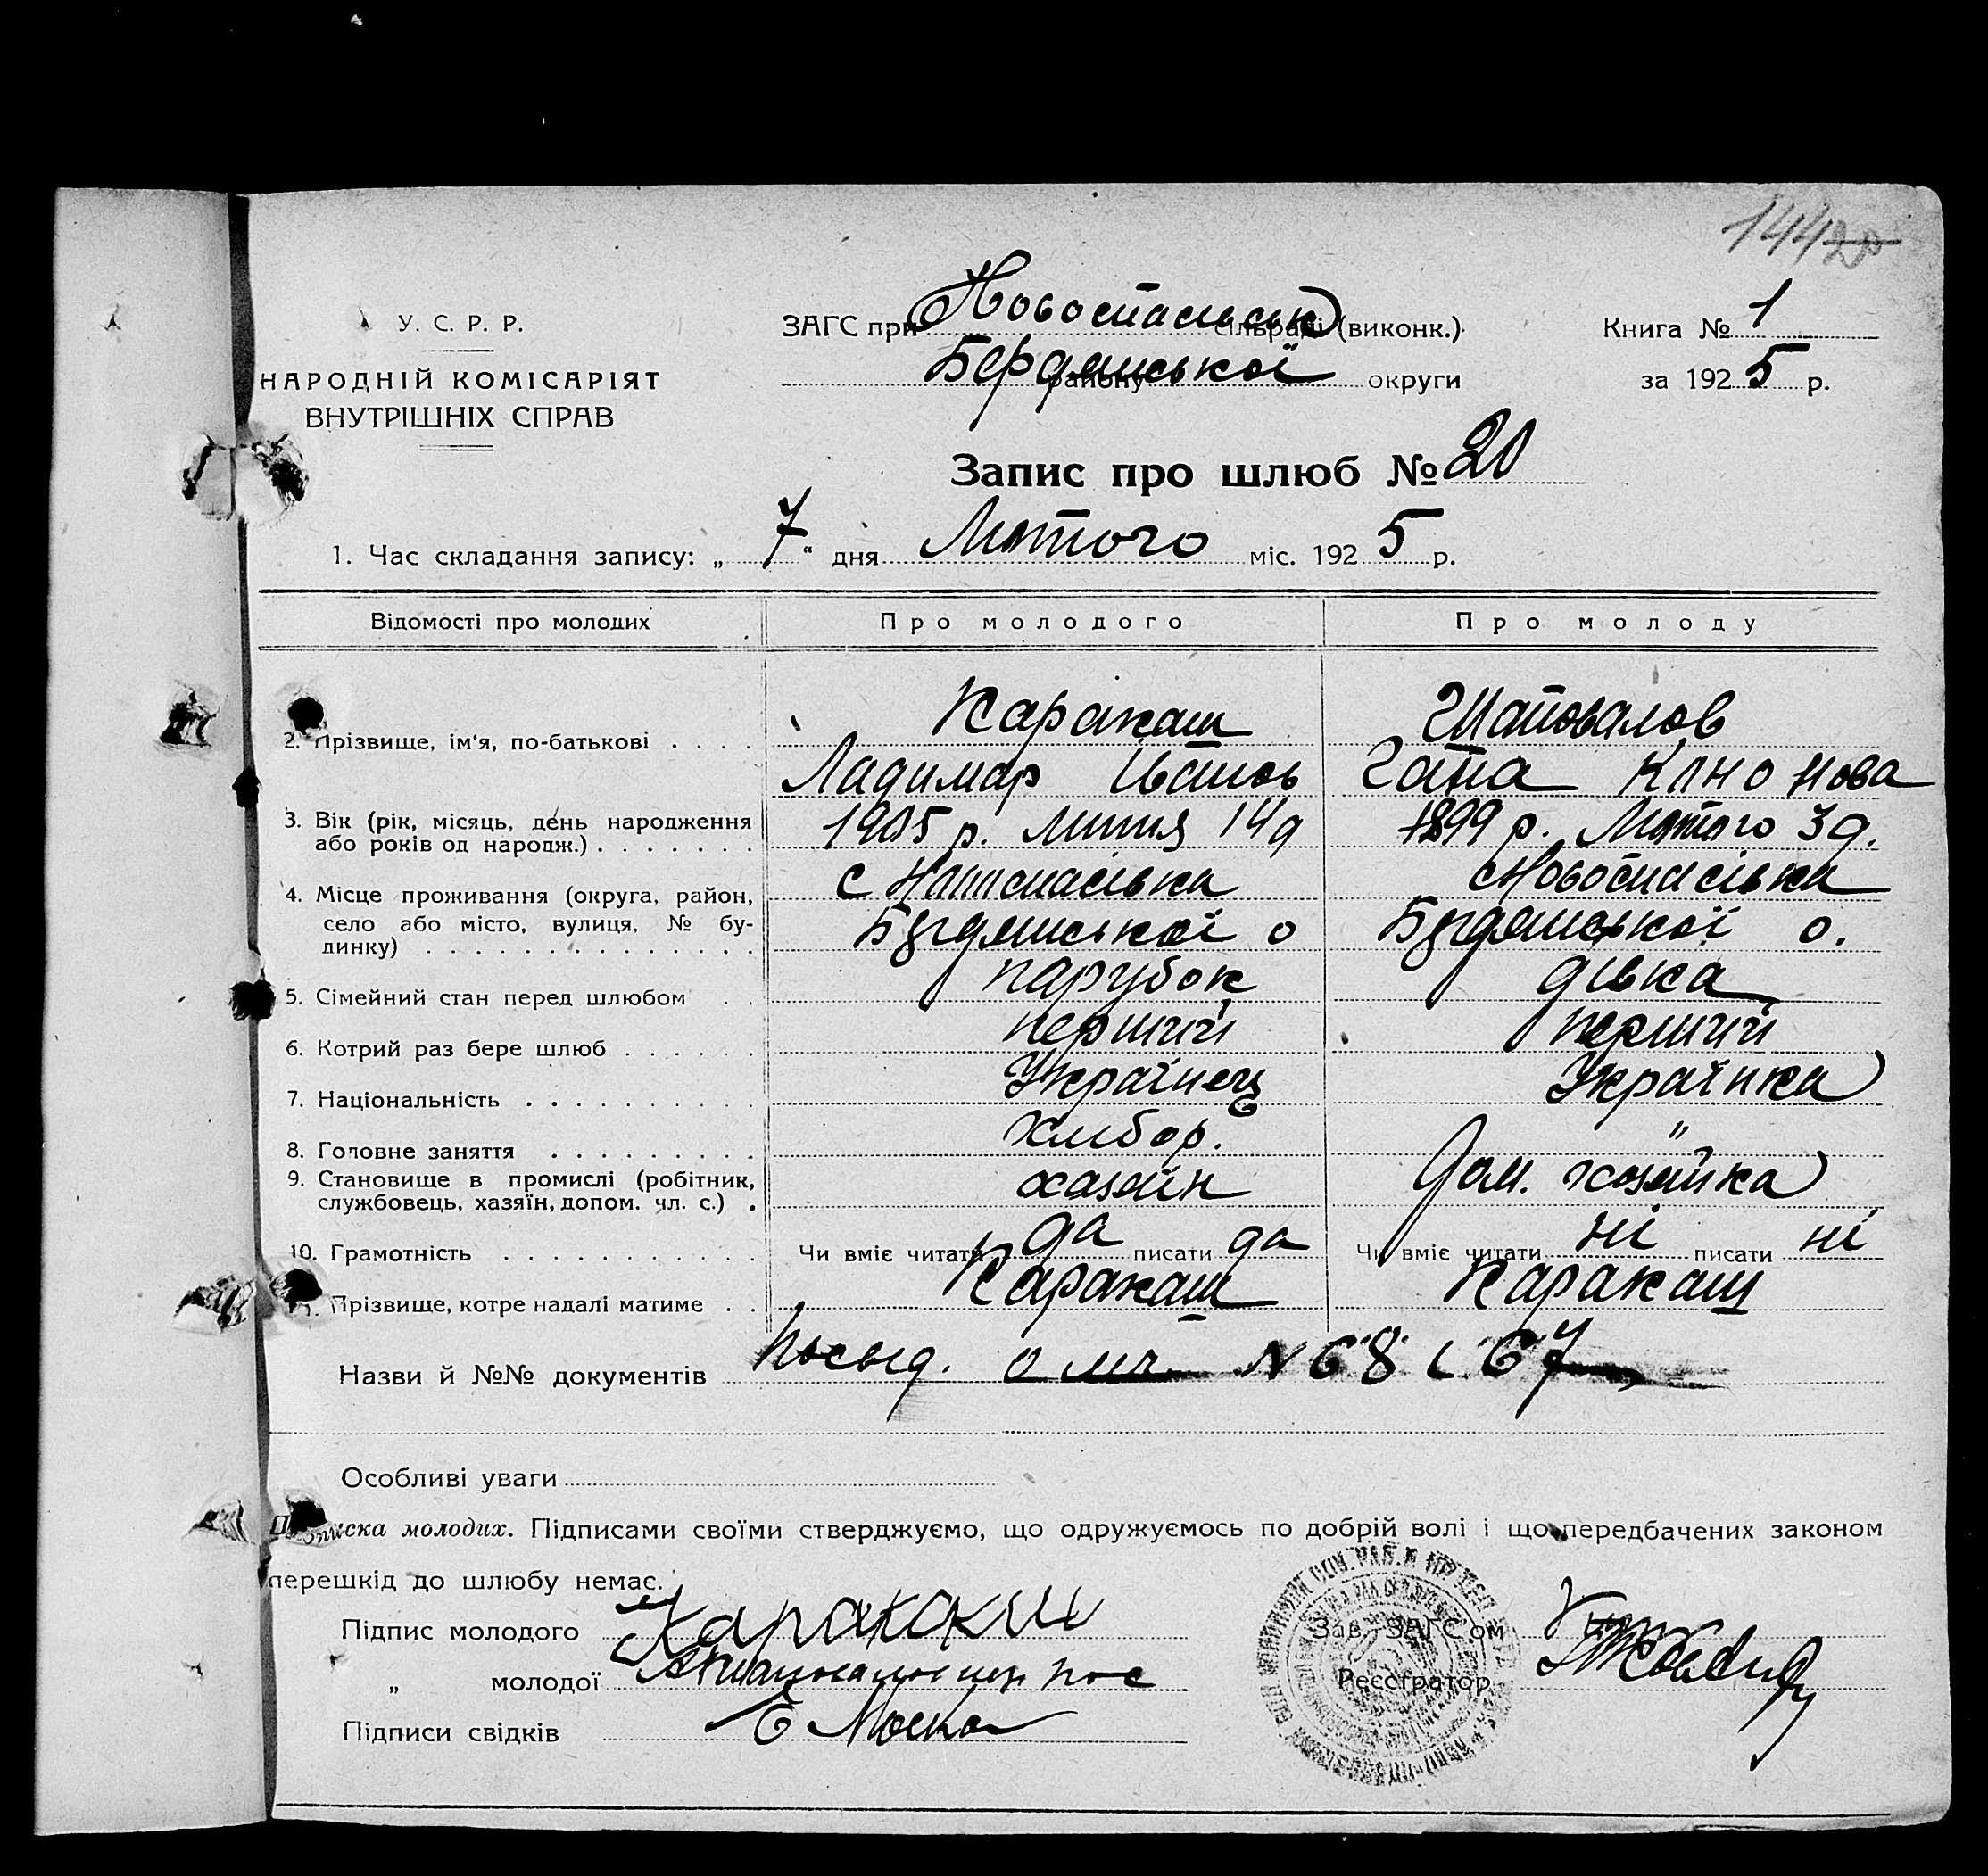 144 20
У. С. Р. Р.
НАРОДНІЙ КОМІСАРІЯТ
ВНУТРІШНІХ СПРАВ
ЗАГС при Новоспаськ сільраді (виконк.)
Бердянської району округи
Книга № 1
за 1925 р.
Запис про шлюб № 20
1. Час складання запису: „ 7 “ дня Лютого міс. 1925 р.
Відомості про молодих Про молодого Про молоду
2. Прізвище, ім‘я, по-батькові . . . . Каракаш Шаповалов
Ладимар Іванов Гапа Кононова
3. Вік (рік, місяць, день народження 1905 р. Липня 14 д 1899 р. Лютого 3 д.
або років од народж.) . . . . . . .
4. Місце проживання (округа, район, с Новоспасівка Новоспасівка
село або місто, вулиця, № бу- Бердянської о Бердянської о.
динку) . . . . . . . . . . . . . .
5. Сімейний стан перед шлюбом . . парубок дівка
6. Котрий раз бере шлюб . . . . . . перший перший
7. Національність . . . . . . . . . . Українец Українка
8. Головне заняття . . . . . . . . . Хлибор. "
9. Становище в промислі (робітник, хазяїн Дом. хозяйка
службовець, хазяїн, допом. чл. с.) .
10. Грамотність . . . . . . . . . . . Чи вміє читати да писати да Чи вміє читати ні писати ні
11. Прізвище, котре надалі матиме . . Каракаш Каракаш
Назви й №№ документів Посвід. о N 68 і 67
Особливі уваги
Підписка молодих. Підписами своїми стверджуємо, що одружуємось по добрій волі і що передбачених законом
перешкід до шлюбу немає.
Підпис молодого Каракаш
„ молодої
Підписи свідків
Зав. ЗАГС‘ом
Реєстратор